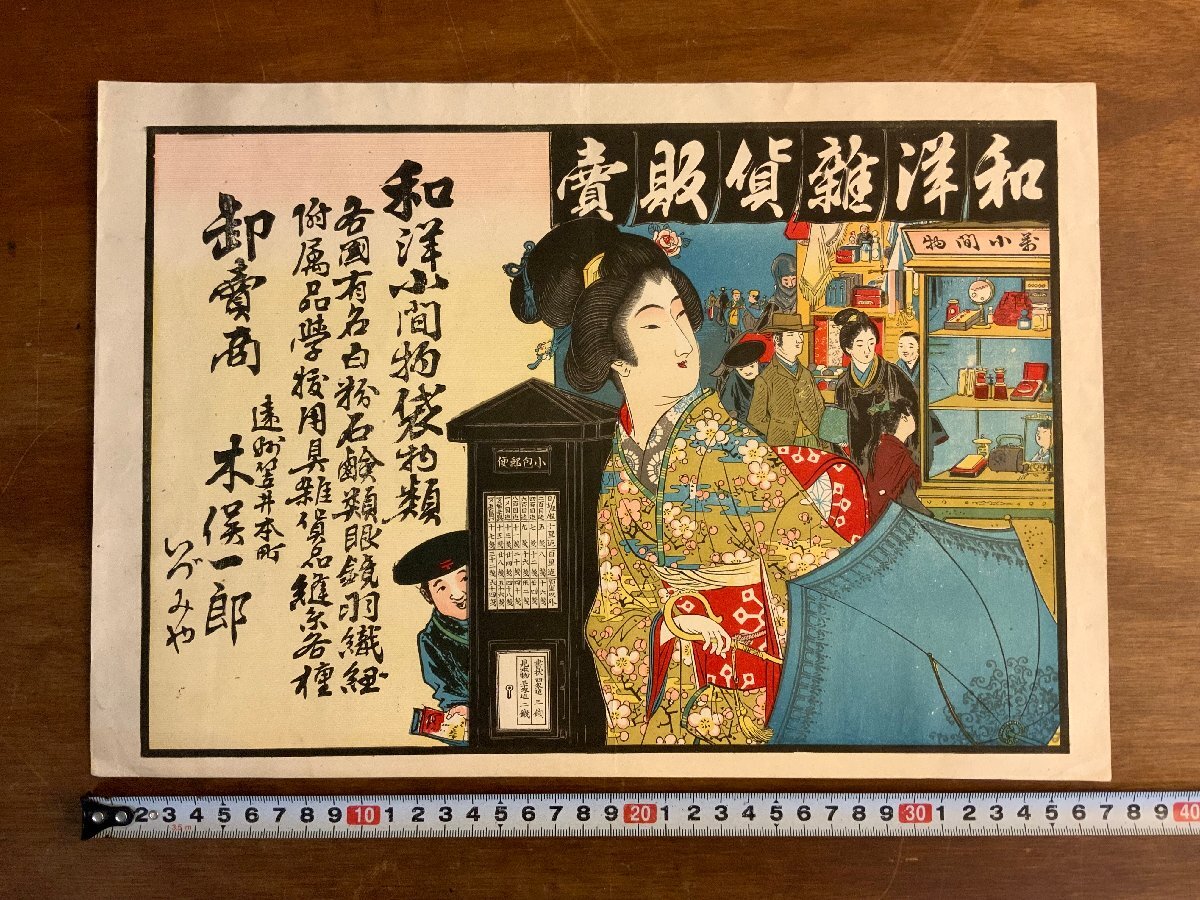 和洋雜貨販賣
萬小間物
和洋小間物袋物類
各國有名白粉石鹸類眼鏡羽織紐
附属品學校用具雜貨品縫糸各種
遠州笠井本町
卸賣商 木俣一郎
いづみや
小包郵便
書状四匁迄三銭
2 3 4 5 6 7 8 9 10 1 2 3 4 5 6 7 8 9 20 1 2 3 4 5 6 7 8 9 30 1 2 3 4 5 6 7 8 9 40